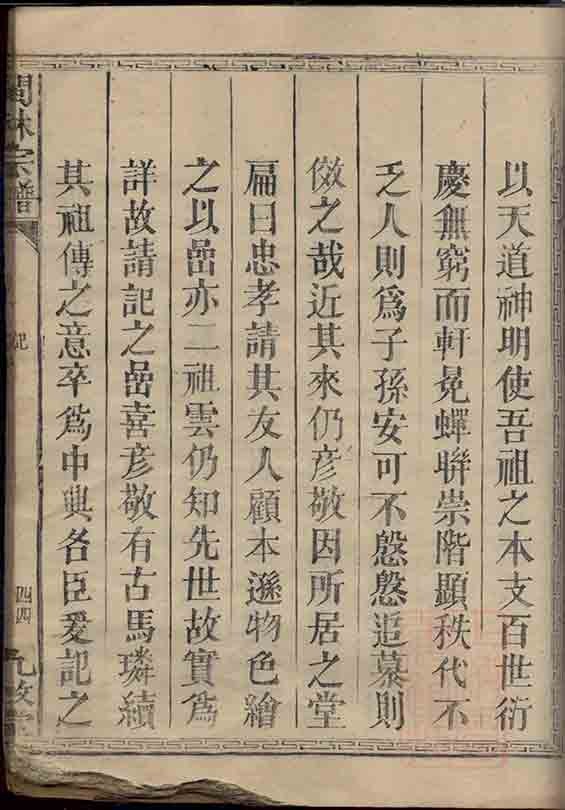 以天道神明使吾祖之本支百世衍
慶無窮而軒冕蟬聨崇階顯秩代不
乏人則爲子孫安可不慇慇追慕則
傚之哉近其來仍彦敬因所居之堂
扁曰忠孝請其友人顧本遜物色繪
之以嵒亦二祖雲仍知先世故實爲
詳故請記之嵒喜彦敬有古馬璘續
其祖傳之意卒爲中興名臣爰記之
林宗譜
記
四四
九牧堂